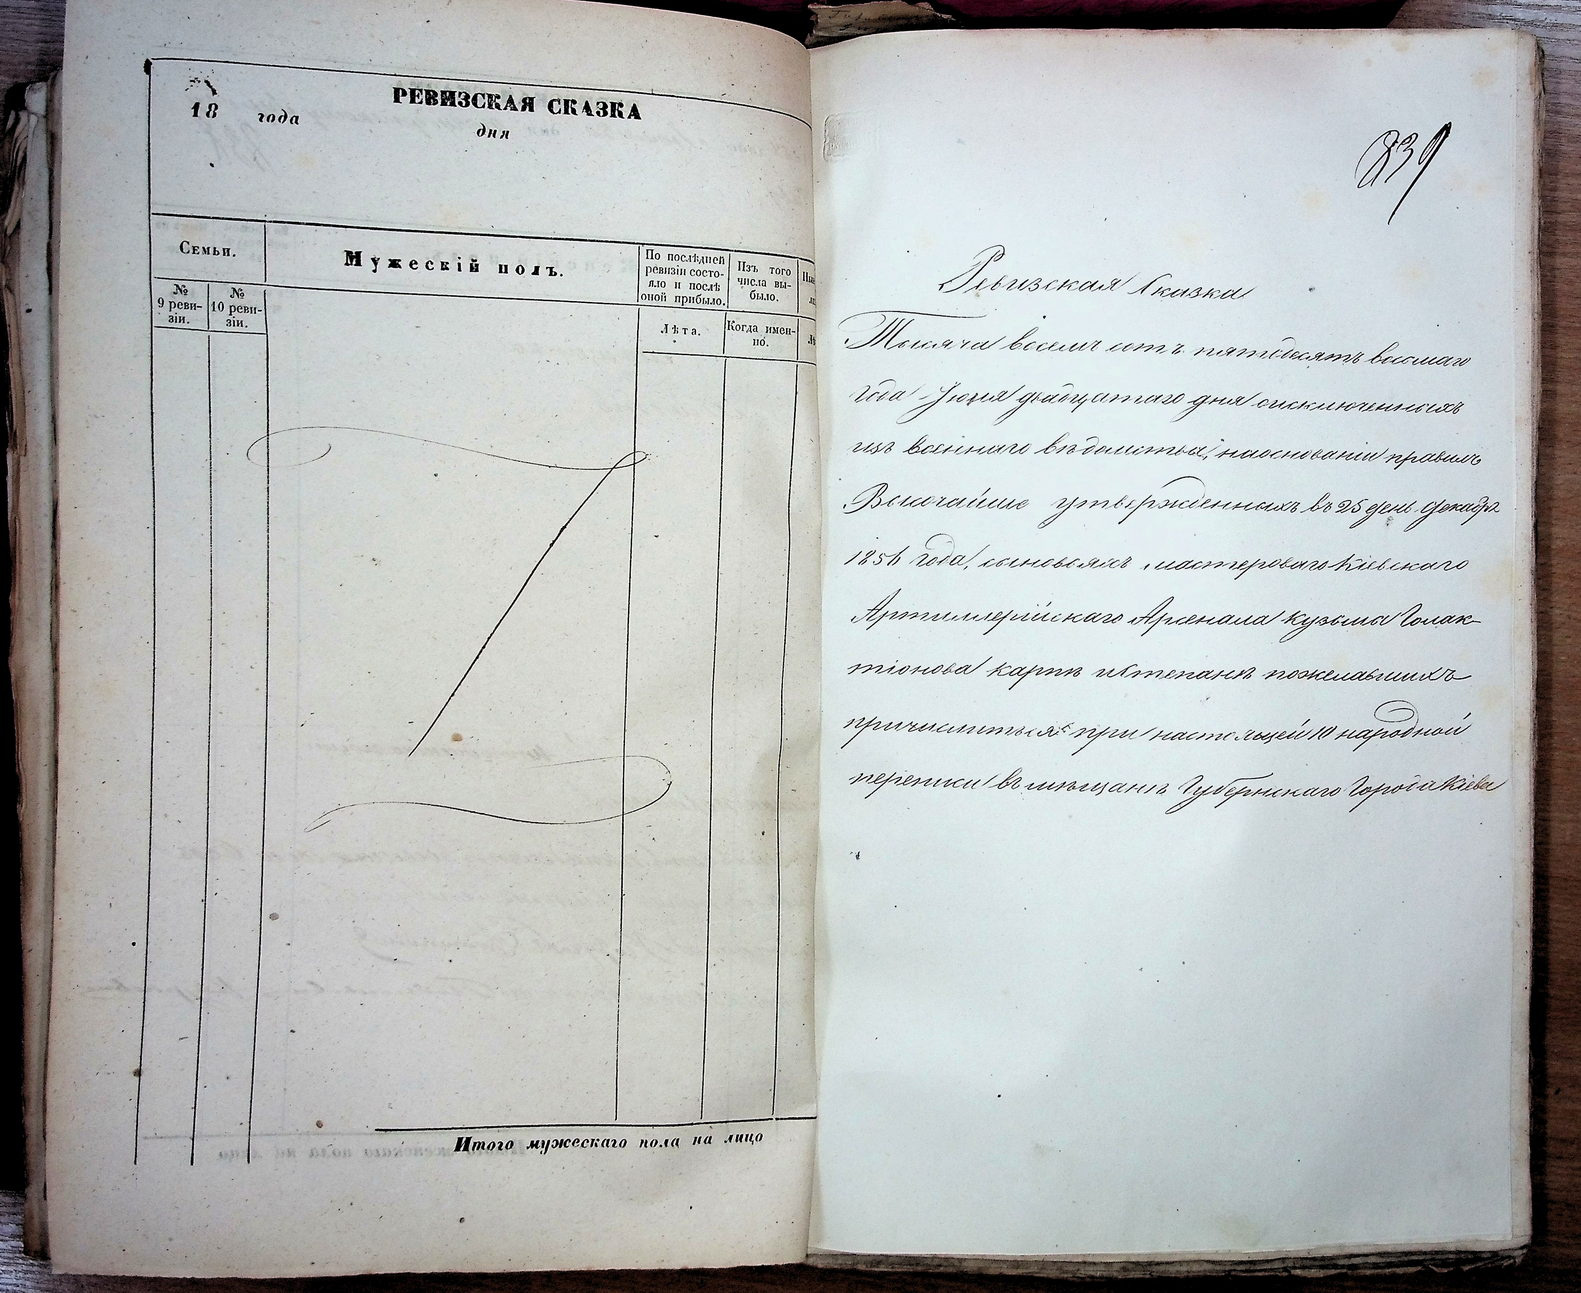 РЕВИЗСКАЯ СКАЗКА
18 года дня
Семьи.
№ 9 реви-
зіи.
№ 10 реви-
зіи.
Мужескій полъ.
По послѣдней
ревизіи состо-
яло и послѣ
оной прибыло.
Лѣта.
Изъ того
числа вы-
было.
Когда имен-
но.
Итого мужескаго пола на лицо
839
Ревизская Сказка
Тысяча восемь сотъ пятдесятъ восмаго
года Іюня двадцатаго дня о исключенныхъ
изъ военнаго вѣдомства, на основаніи правилъ
Высочайше утвержденныхъ въ 25 день Декабря
1856 года, сыновьяхъ мастероваго Кіевскаго
Артиллерійскаго Арсенала Кузьма Голак-
тіонова Карпѣ и Степанѣ пожелавшихъ
причислиться при настоящей 10 народной
переписи въ мѣщанѣ Губернскаго Города Кіева